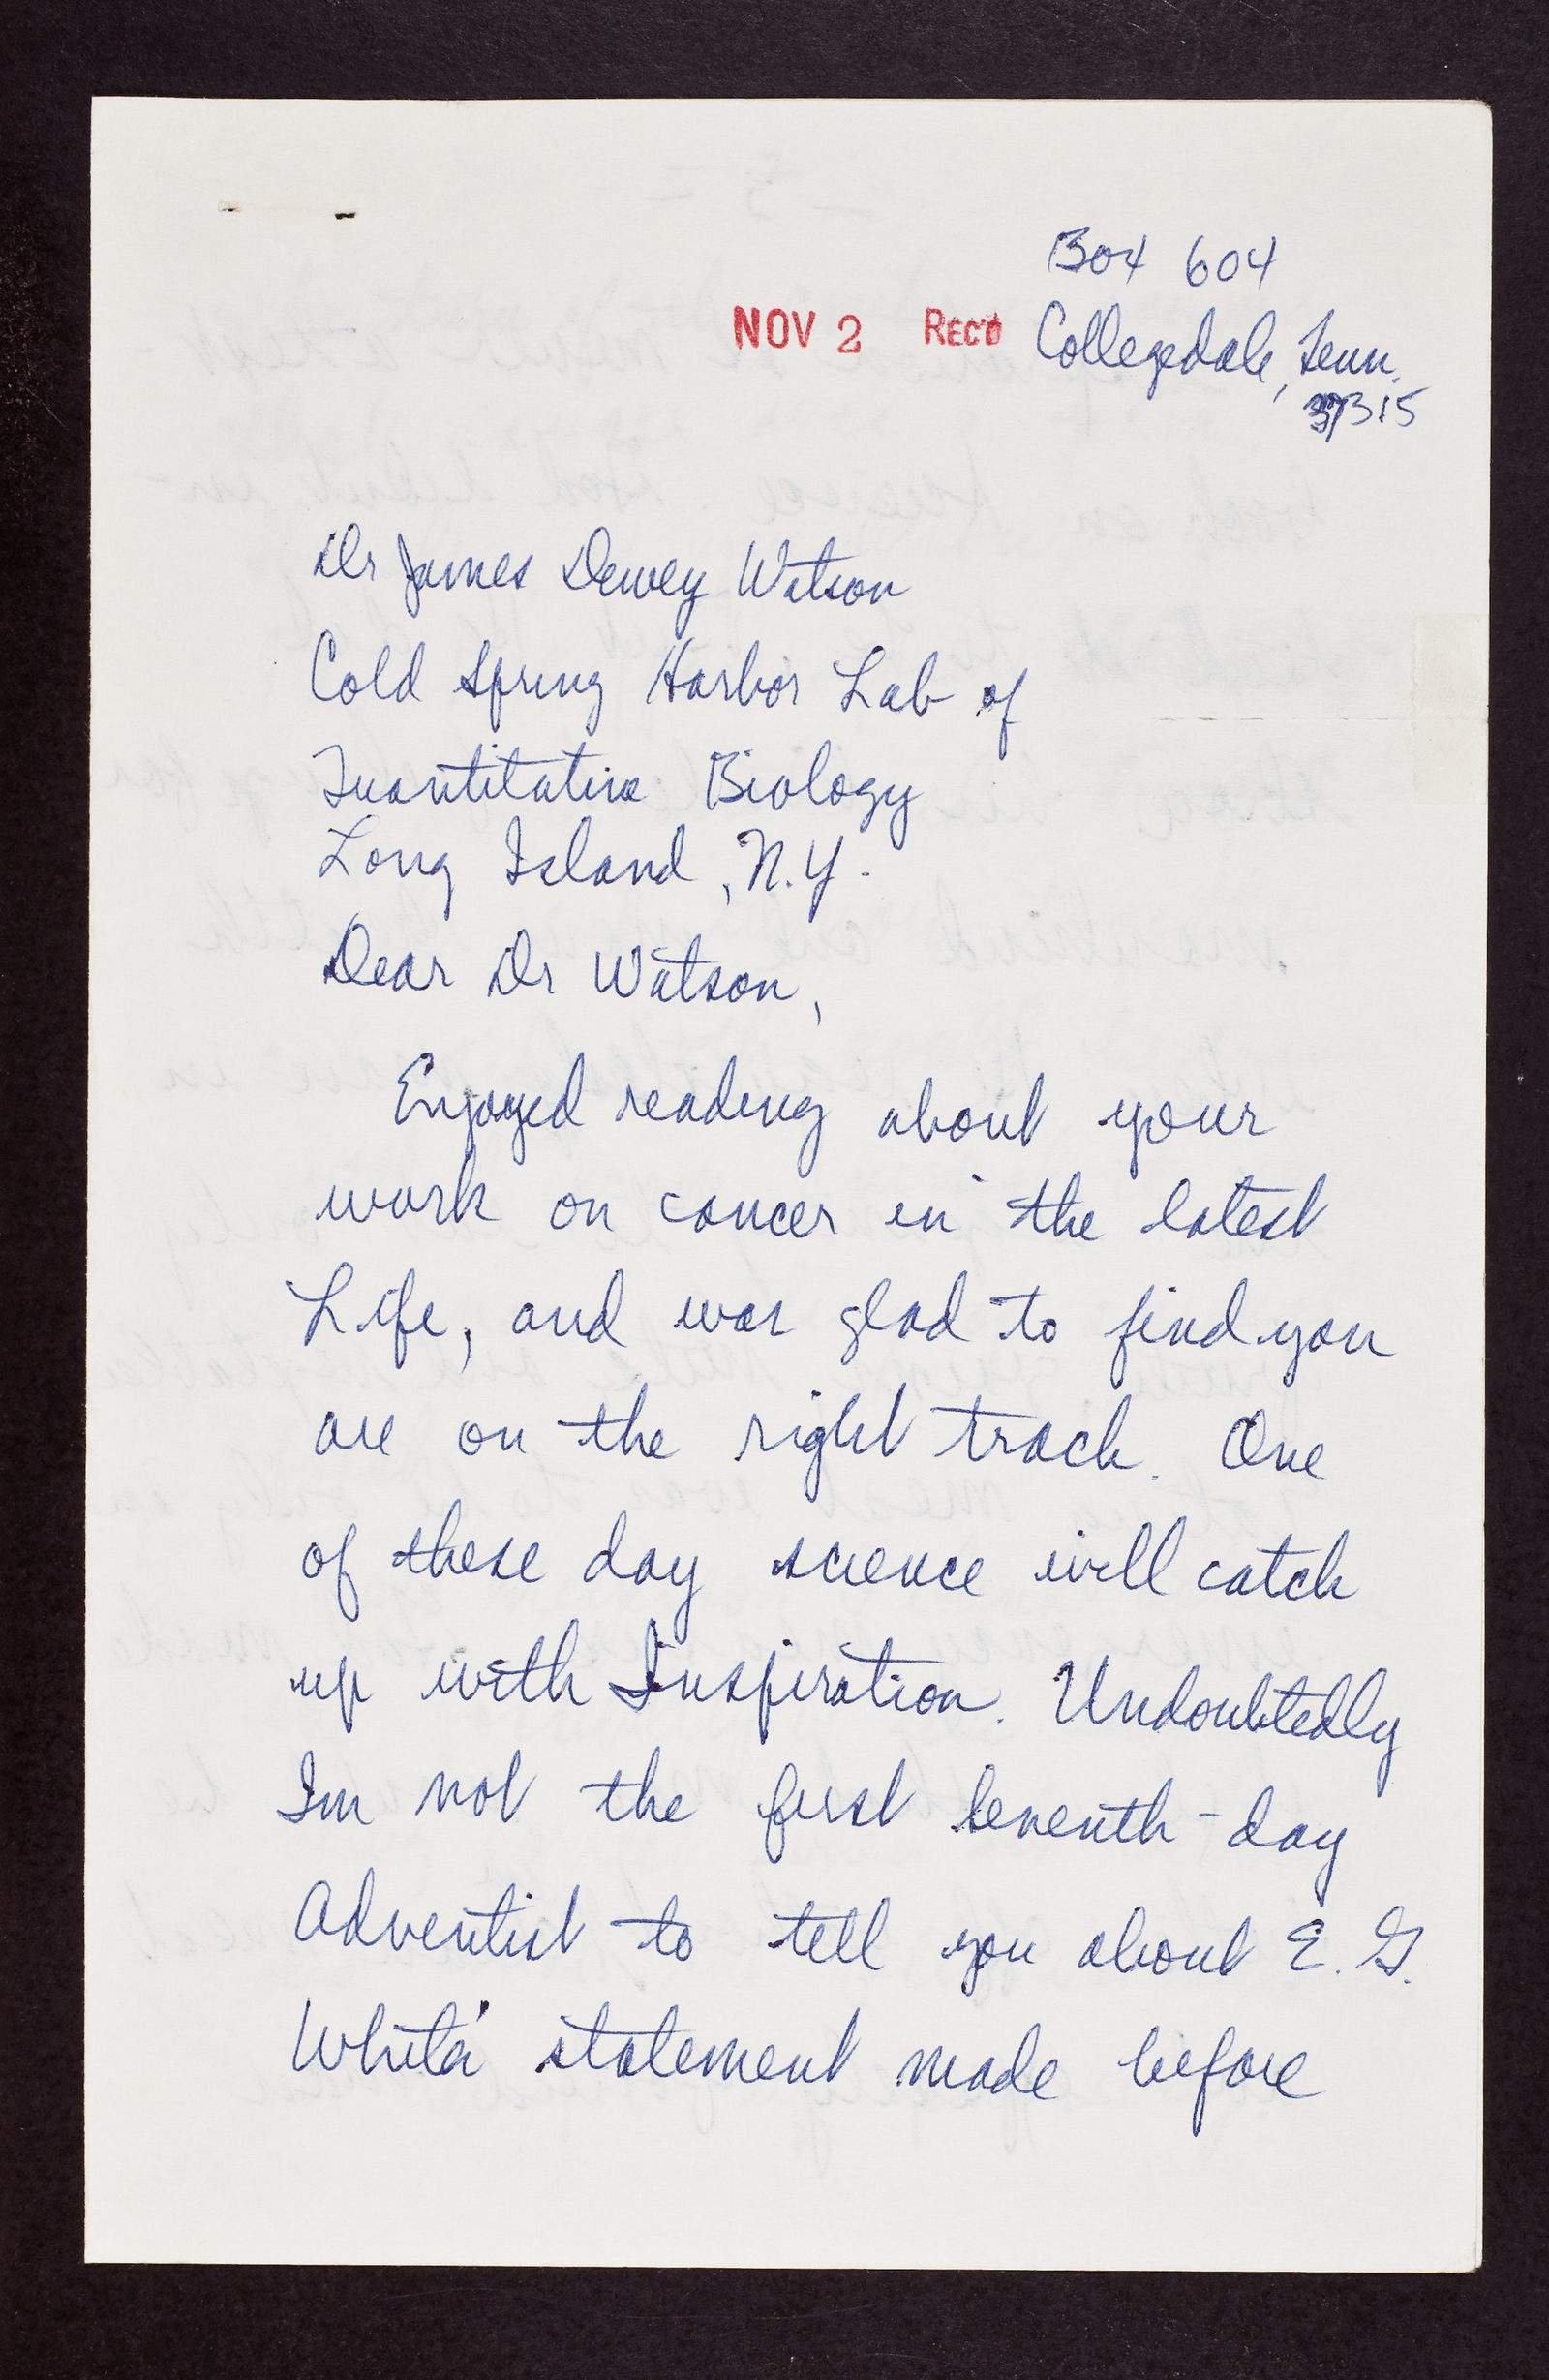 Box 604
NOV 2 REC'D Collegedale, Tenn.
37315
Dr James Dewey Watson
Cold Spring Harbor Lab of
Quantitative Biology
Long Island, N.Y.
Dear Dr Watson,
Enjoyed reading about your
work on cancer in the latest
Life, and was glad to find you
are on the right track. One
of these day science will catch
up with Inspiration. Undoubtedly
Im not the first Seventh-day
Adventist to tell you about E. G.
White' statement made before